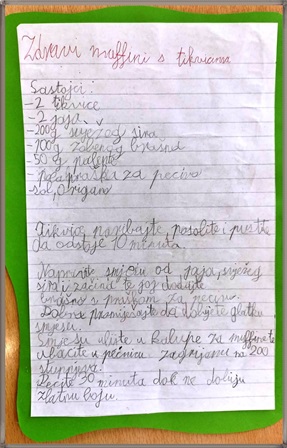 Zdravi maffini s tikvicama
Sastojci:
-2 tikvice
-2 jaja
-200g svježeg sira
-100g zobenog brašna
-50 g palente
-pola praška za pecivo
-sol, origano
Tikvice naribajte, posolite i pustite
da odstoje 10 minuta.
Napravite smjesu od jaja, svježeg
sira i začina te joj dodajte
brašno s praškom za pecivo.
Dobro promiješajte da dobijete glatku
smjesu.
Smjesu ulite u kalupe za maffine te
ubacite u pećnicu zagrijanu na 200
stupnjeva.
Pecite 30 minuta dok ne dobiju
zlatnu boju.